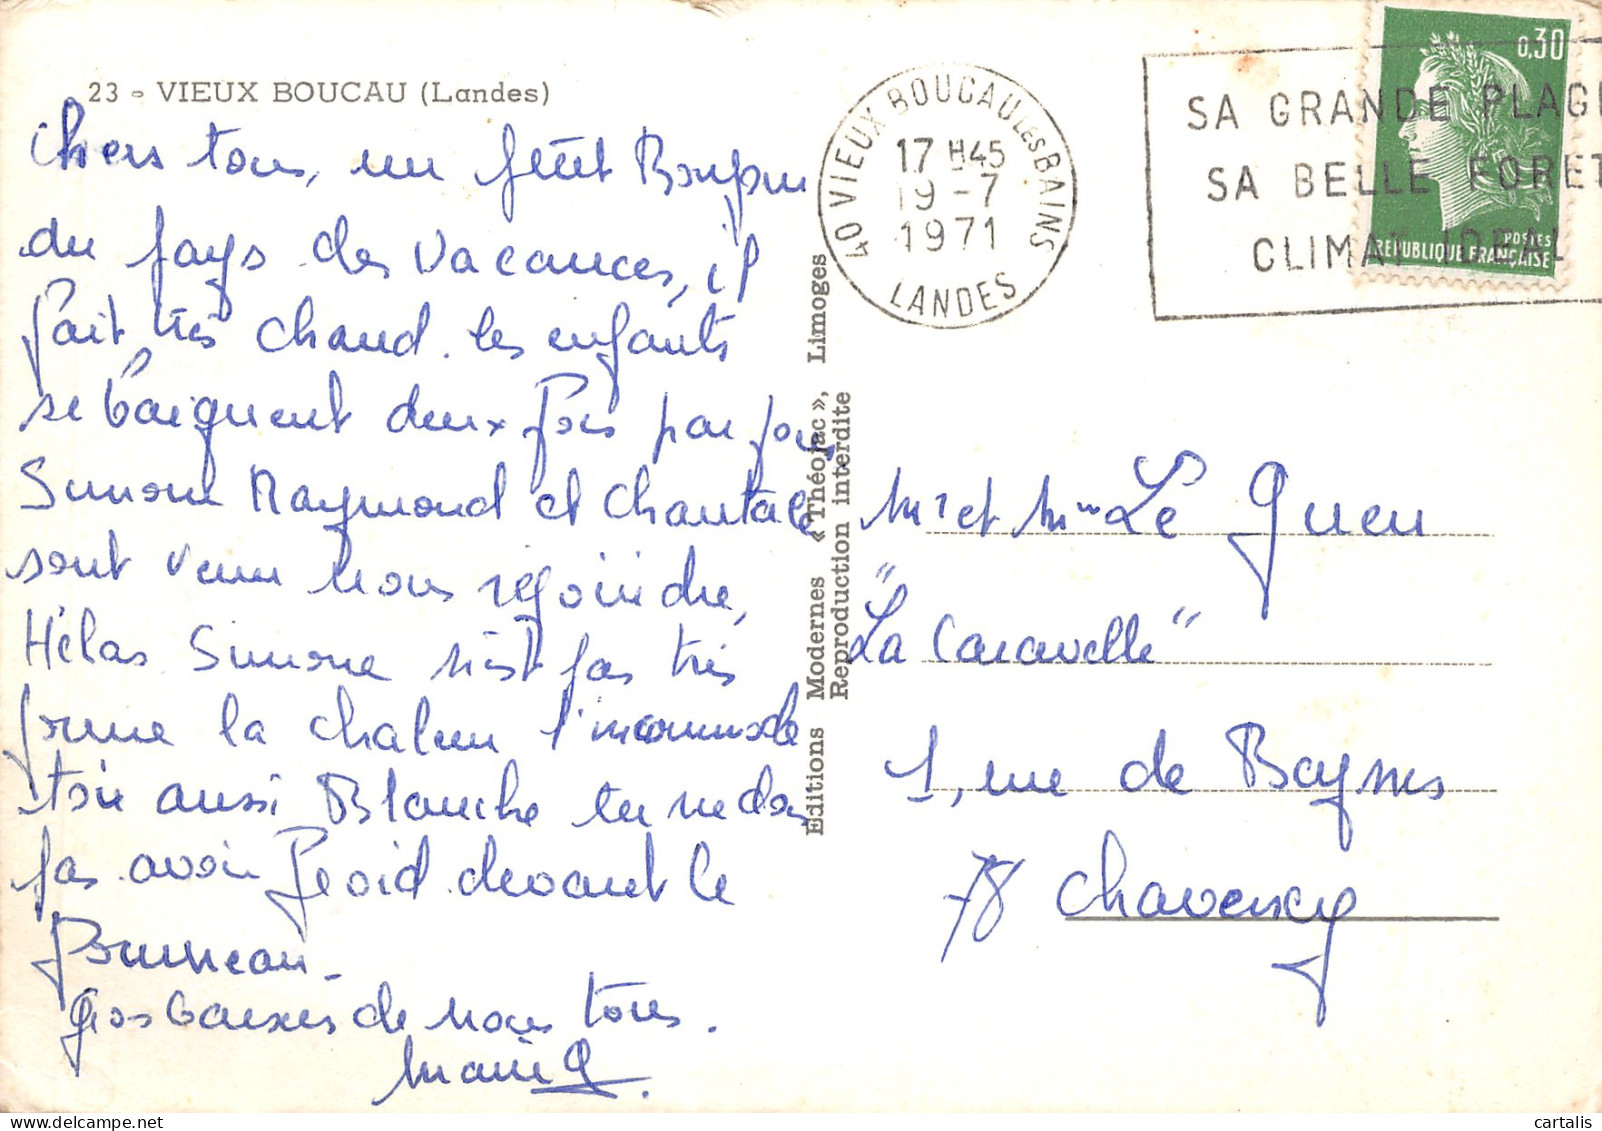 23 - VIEUX BOUCAU (Landes)
Chers tous, un petit Bonjour
du pays des vacances, il
fait très chaud. les enfants
se baignent deux fois par jour,
Simone Raymond et Chantale
sont venu nous rejoindre,
Hélas Simone n'est pas très
forme la chaleur l'incommode
toi aussi Blanche tu ne dois
pas avoir froid devant le
fourneau.
gros baises de nous tous.
40 VIEUX BOUCAU LES BAINS
17 H45
19 -7
1971
LANDES
SA GRANDE PLAGE
SA BELLE FORET
CLIMAT IDEAL
0,30
POSTES
REPUBLIQUE FRANÇAISE
Editions Modernes « Théojac », Limoges
Reproduction interdite
Mr et Mme Le Gueu
"La Caravelle"
1, rue de Baynes
78 Chavenay
cartalis.com